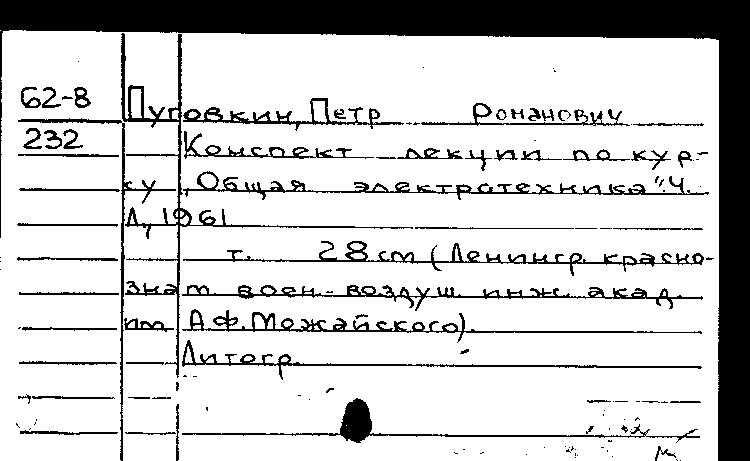 62-8 Пуговкин, Петр Романович
232 Конспект лекции по кур-
су „Общая электротехника". Ч.
Л., 1961
т. 28 см (Ленингр. красно-
знам. воен.-воздуш. инж. акад.
им А.Ф. Можайского).
Литогр.